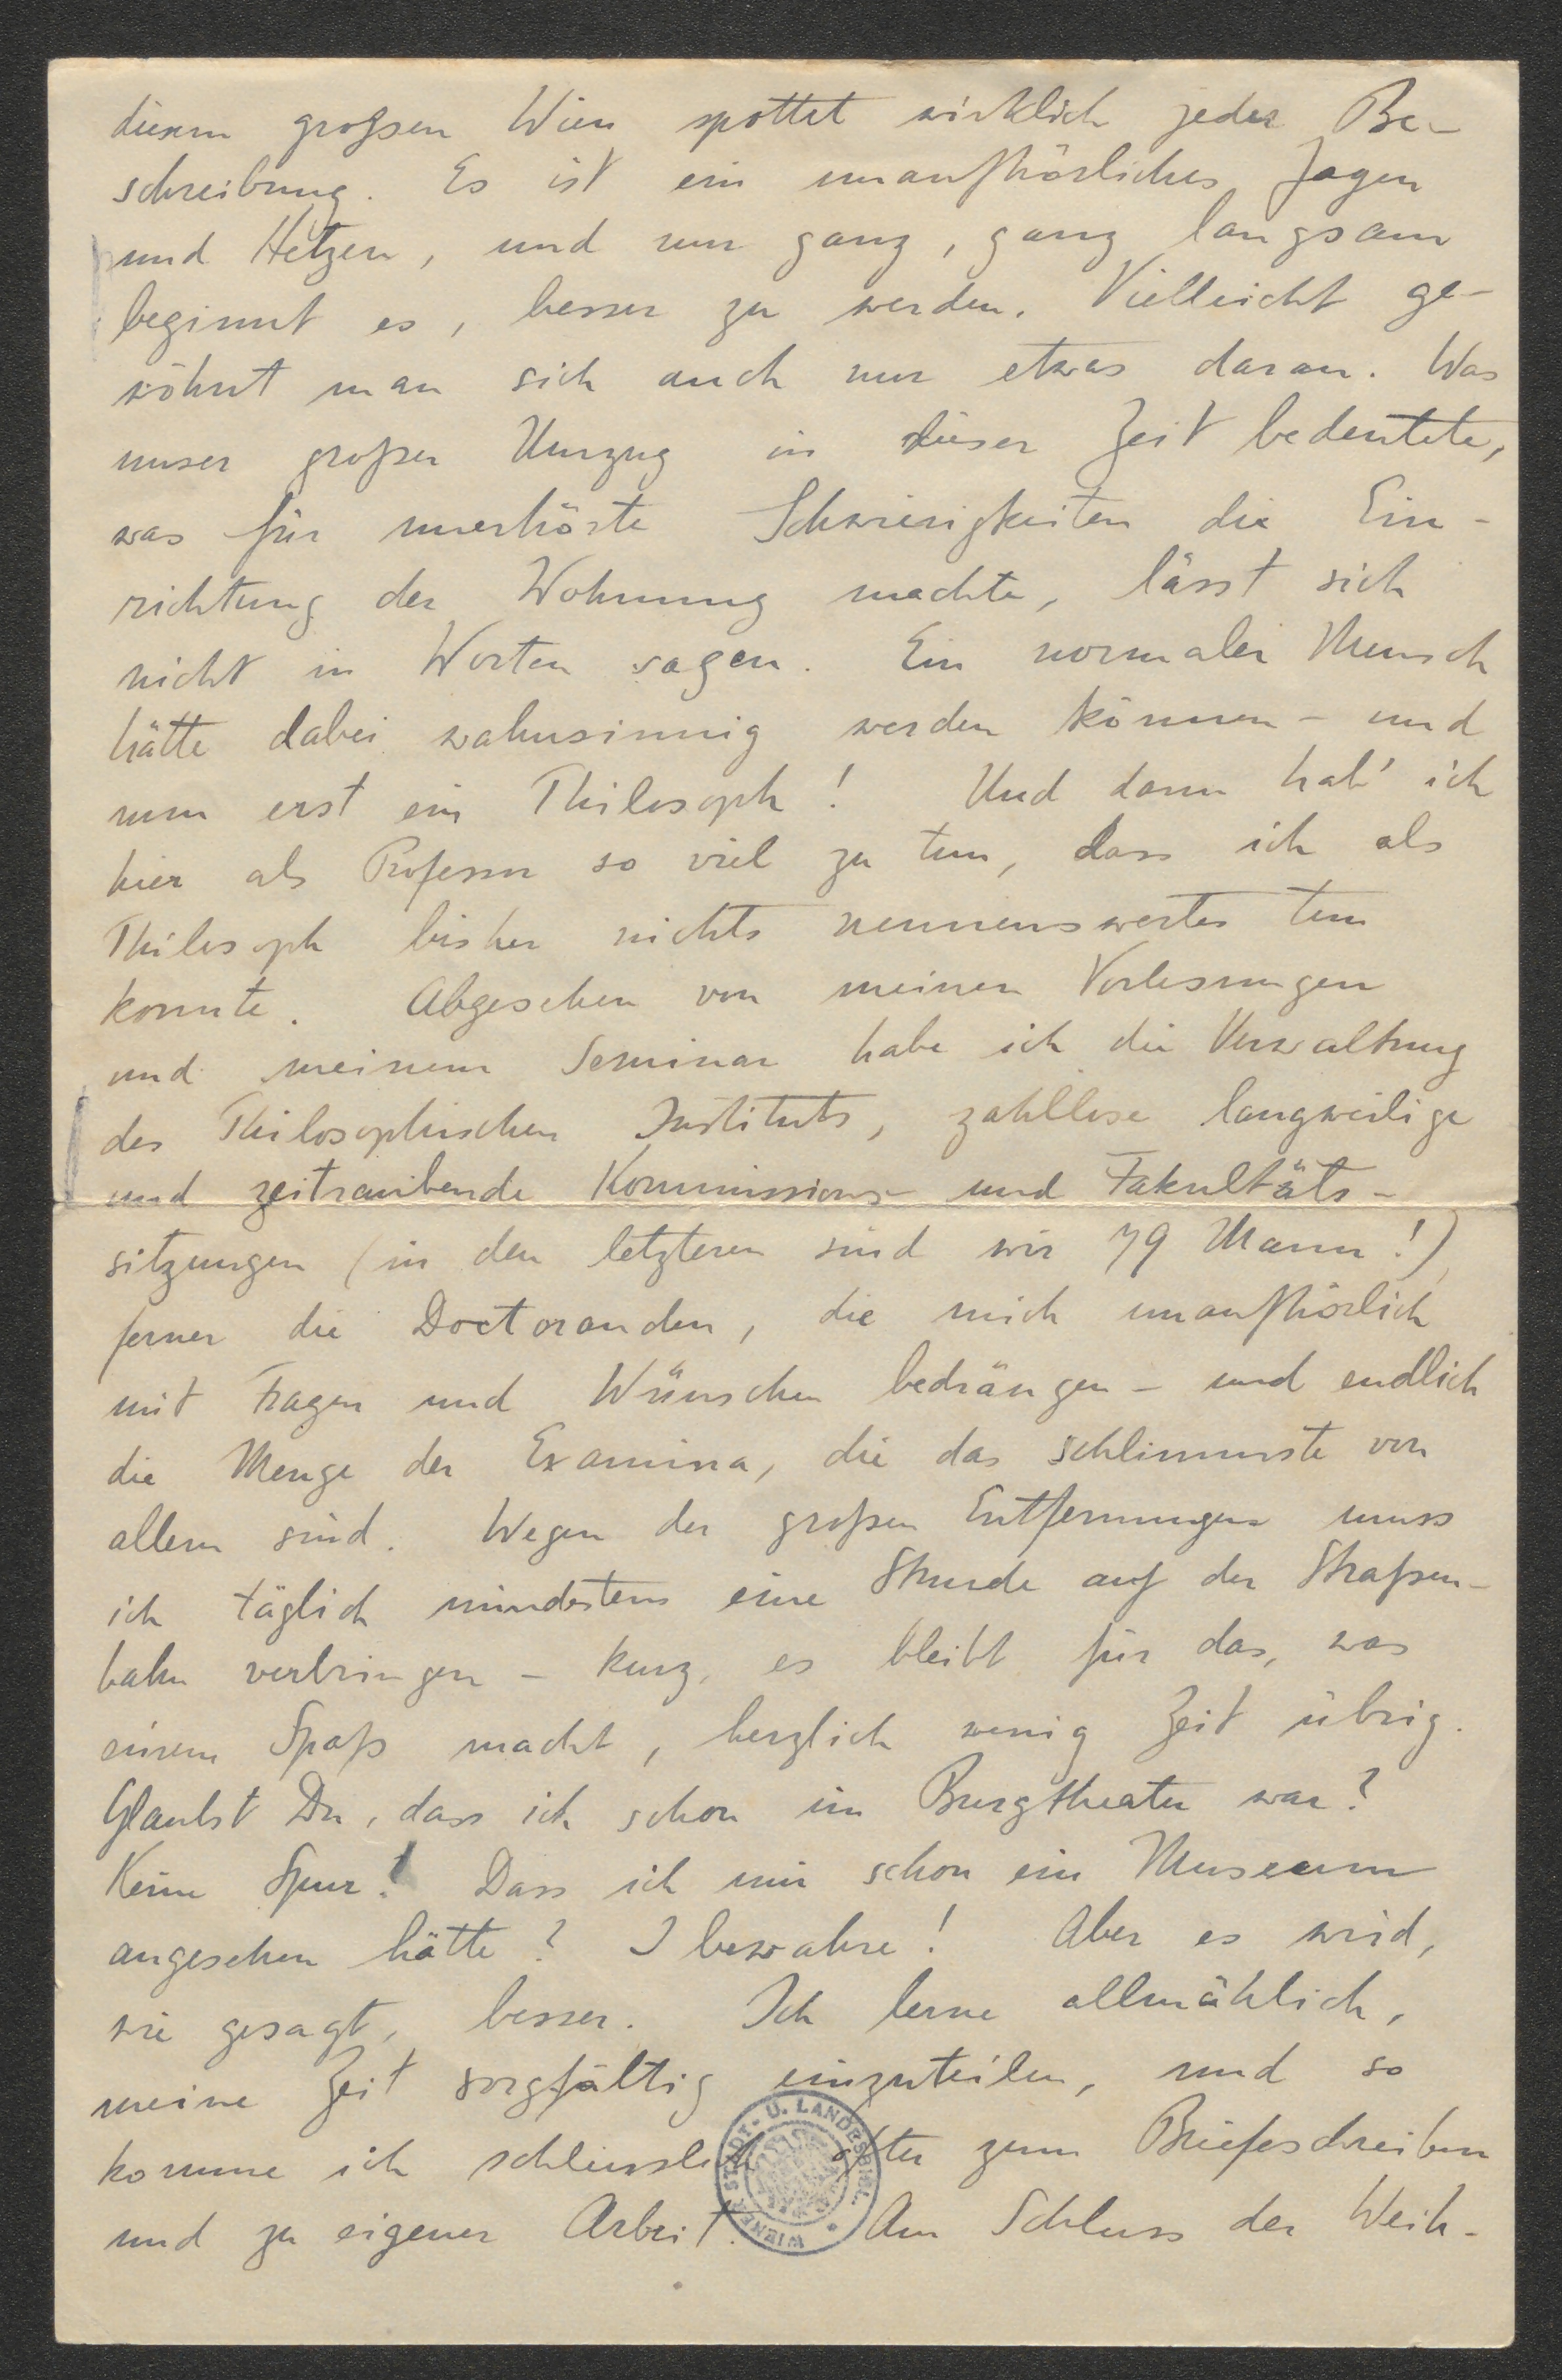 diesem großen Wien spottet wirklich jeder Be-
schreibung. Es ist ein unaufhörliches Jagen
und Hetzen, und nur ganz, ganz langsam
beginnt es, besser zu werden. Vielleicht ge-
wöhnt man sich auch nur etwas daran. Was
unser großer Umzug in dieser Zeit bedeutete,
was für unerhörte Schwierigkeiten die Ein-
richtung der Wohnung machte, lässt sich
nicht in Worten sagen. Ein normaler Mensch
hätte dabei wahnsinnig werden können - und
nun erst ein Philosoph! Und dann hab' ich
hier als Professor so viel zu tun, dass ich als
Philosoph bisher nichts nennenswertes tun
konnte. Abgesehen von meinen Vorlesungen
und meinem Seminar habe ich die Verwaltung
des Philosophischen Instituts, zahllose langweilige
und zeitraubende Kommissions- und Fakultäts-
sitzungen (in den letzteren sind wir 79 Mann!),
ferner die Doctoranden, die mich unaufhörlich
mit Fragen und Wünschen bedrängen - und endlich
die Menge der Examina, die das schlimmste von
allem sind. Wegen der großen Entfernungen muss
ich täglich mindestens eine Stunde auf der Straßen-
bahn verbringen - kurz, es bleibt für das, was
einem Spaß macht, herzlich wenig Zeit übrig.
Glaubst Du, dass ich schon im Burgtheater war?
Keine Spur! Dass ich mir schon ein Museum
angesehen hätte? I bewahre! Aber es wird,
wie gesagt, besser. Ich lerne allmählich,
meine Zeit sorgfältig einzuteilen, und so
komme ich schliesslich öfter zum Briefeschreiben
und zu eigener Arbeit. Am Schluss der Weih-
WIENER STADT- U. LANDESBIBL.